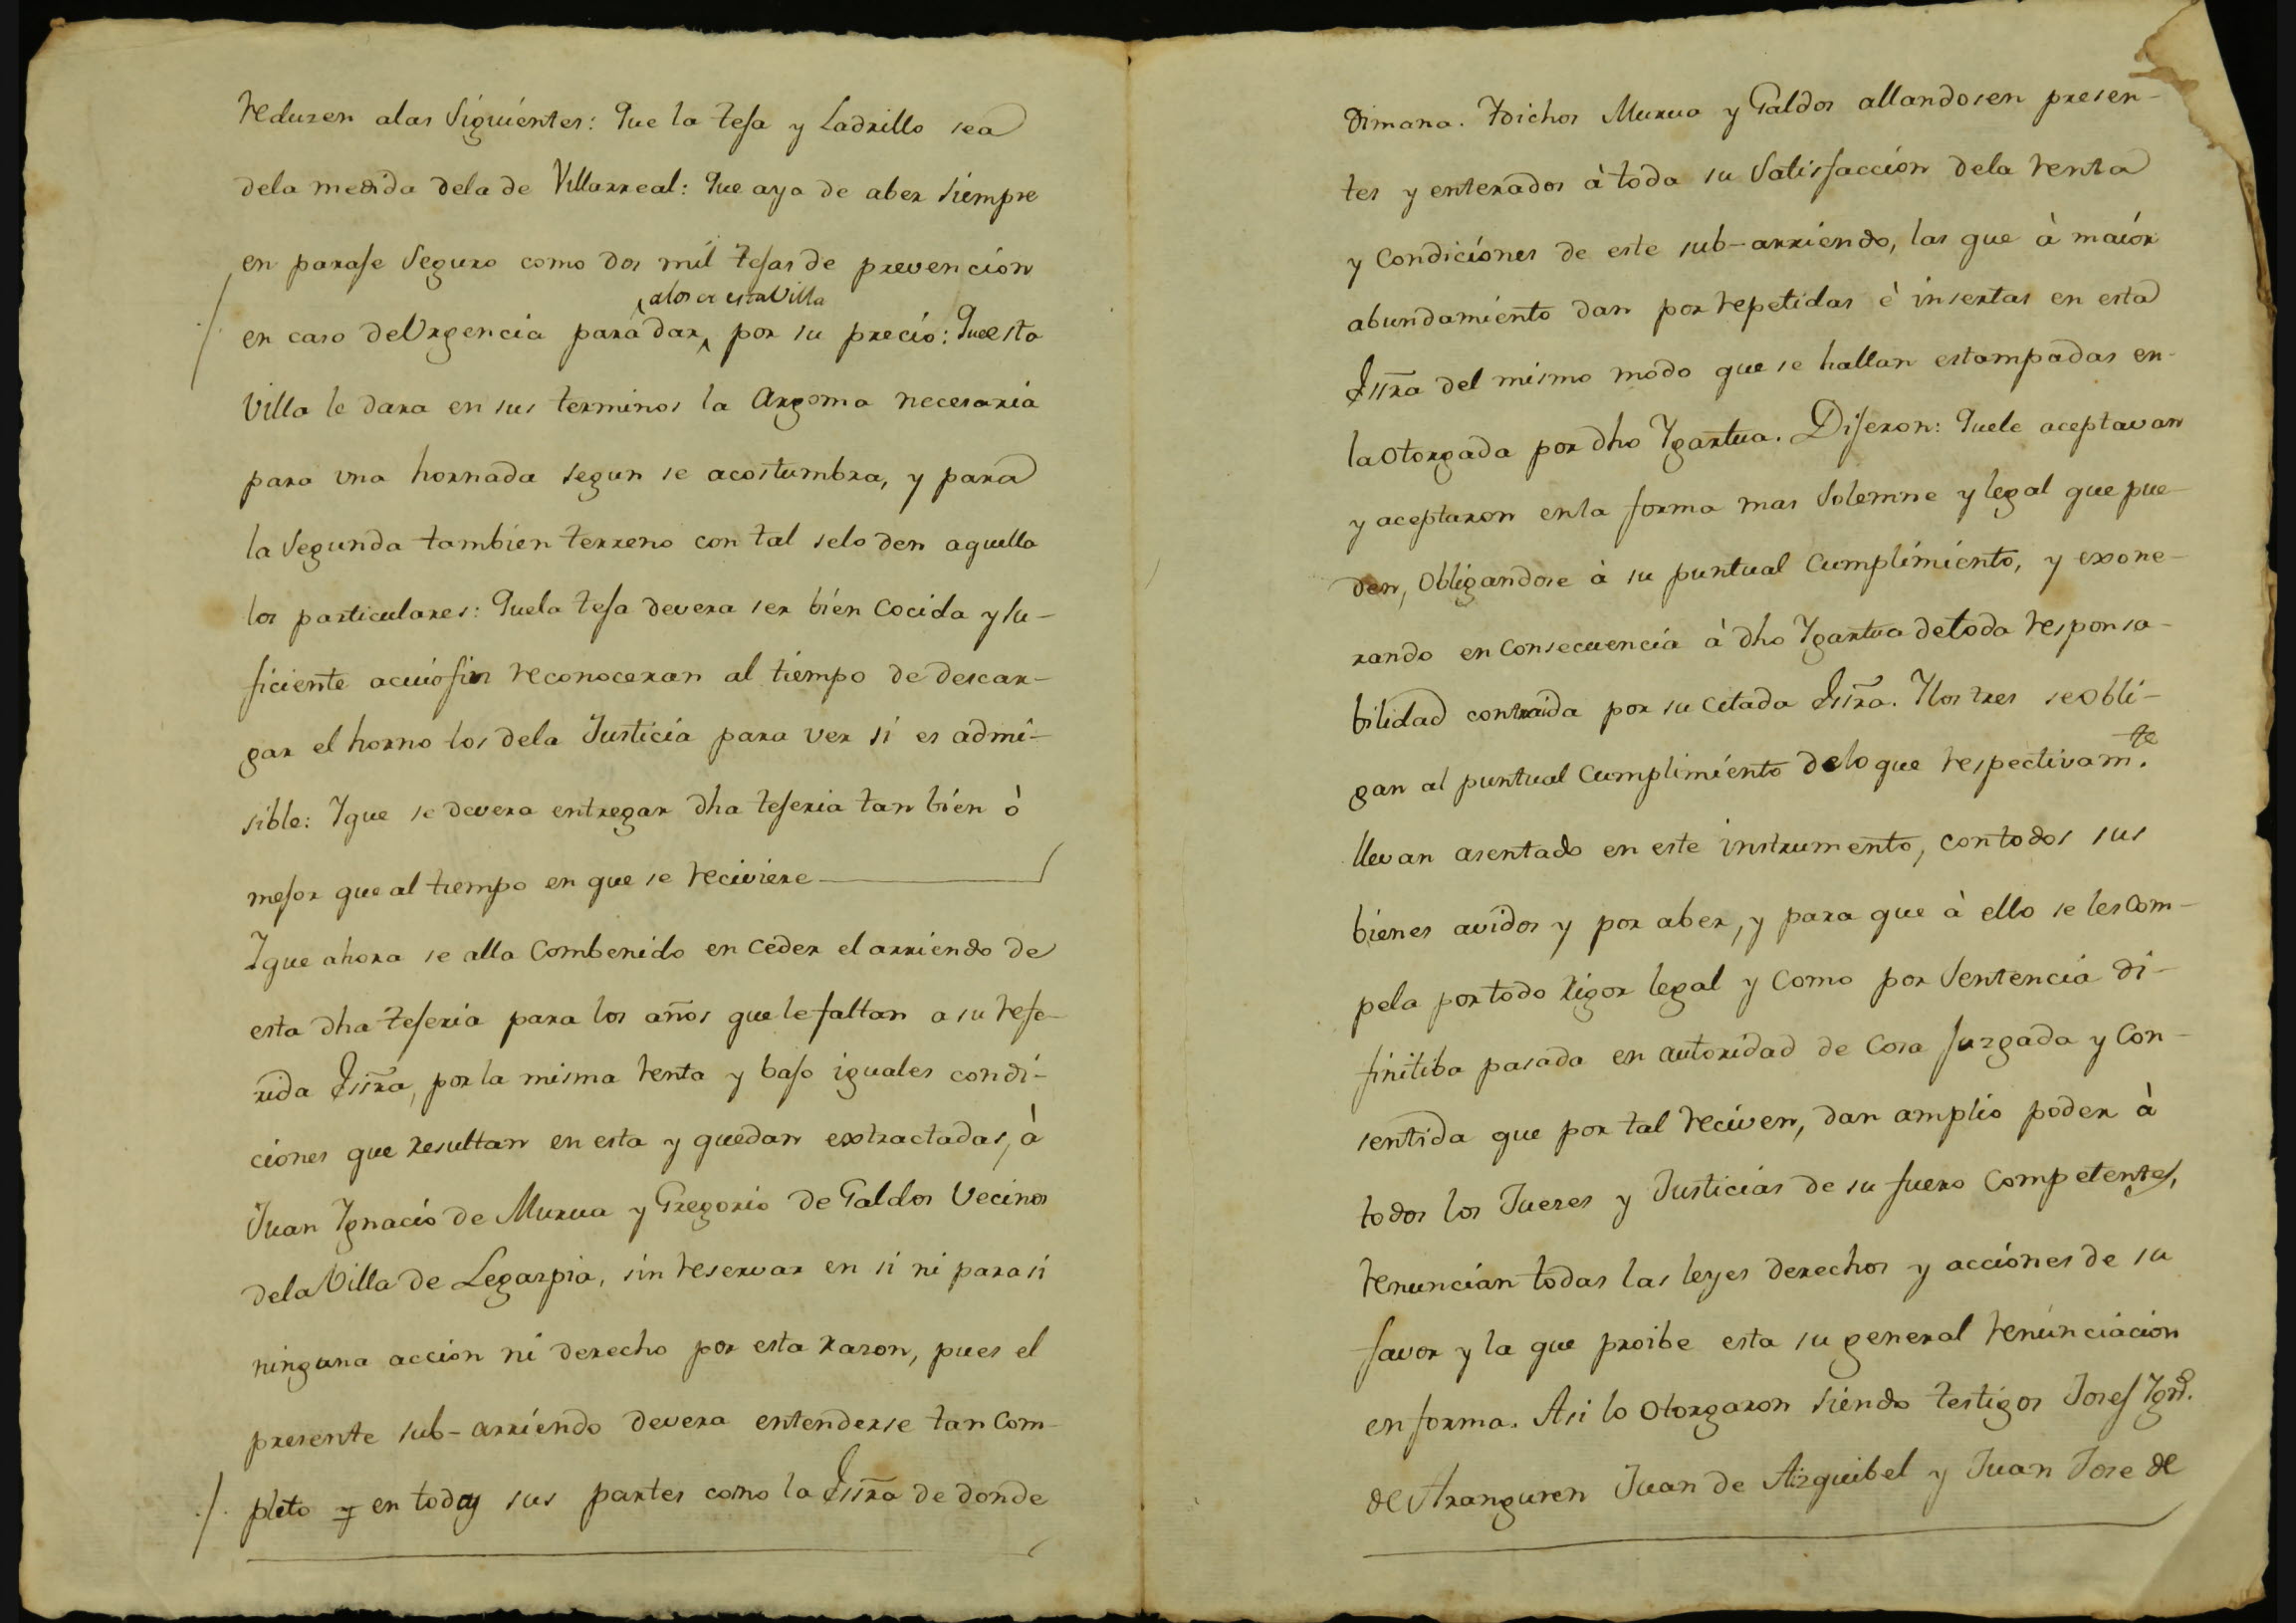 reduzen alas Siguientes: Que la teja y Ladrillo sea
dela medida dela de Villarreal: Que aya de aber siempre
en paraje Seguro como dos mil tejas de prevencion
alos de esta Villa
en caso de Urgencia para dar por su precio: Que esta
Villa le dara en sus terminos la Argoma necesaria
para una hornada segun se acostumbra, y para
la Segunda tambien terreno con tal selo den aquella
los particulares: Quela teja devera ser bien Cocida y su-
ficiente acuio fin reconoceran al tiempo de descar-
gar el horno los dela Justicia para ver si es admi-
sible: Y que se devera entregar dha tejeria tan bien ò
mejor que al tiempo en que se reciviere
Y que ahora se alla Combenido en Ceder el arriendo de
esta dha tejeria para los años que le faltan a su refe-
rida Essra, por la misma renta y bajo iguales condi-
ciones que resultan en esta y quedan extractadas, à
Juan Ygnacio de Murua y Gregorio de Galdos Vecinos
dela Villa de Legazpia, sin reservar en si ni para si
ninguna accion ni derecho por esta razon, pues el
presente sub-arriendo devera entenderse tan Com-
pleto y en todas sus partes como la Essra de donde
Dimana. Y dichos Murua y Galdos allandosen presen-
tes y enterados à toda su Satisfaccion dela renta
y Condiciones de este sub-arriendo, las que à maior
abundamiento dan por repetidas è insertas en esta
Essra del mismo modo que se hallan estampadas en
la Otorgada por dho Ygartua. Dijeron: Quele aceptavan
y aceptaron en la forma mas Solemne y legal que pue-
den, Obligandose à su puntual Cumplimiento, y exone-
rando en Consecuencia à dho Ygartua de toda responsa-
bilidad contraida por su Citada Essra. Y los tres se Obli-
gan al puntual Cumplimiento delo que respectivam.te
llevan asentado en este instrumento, con todos sus
bienes avidos y por aber, y para que à ello se les Com-
pela por todo rigor legal y Como por Sentencia di-
finitiba pasada en autoridad de Cosa Juzgada y Con-
sentida que por tal reciven, dan amplio poder à
todos los Juezes y Justicias de su fuero Competentes,
renuncian todas las leyes derechos y acciones de su
favor y la que proibe esta su general renunciacion
en forma. Asi lo Otorgaron siendo testigos Josef Ygn.o
de Aranguren Juan de Aizquibel y Juan Jose de